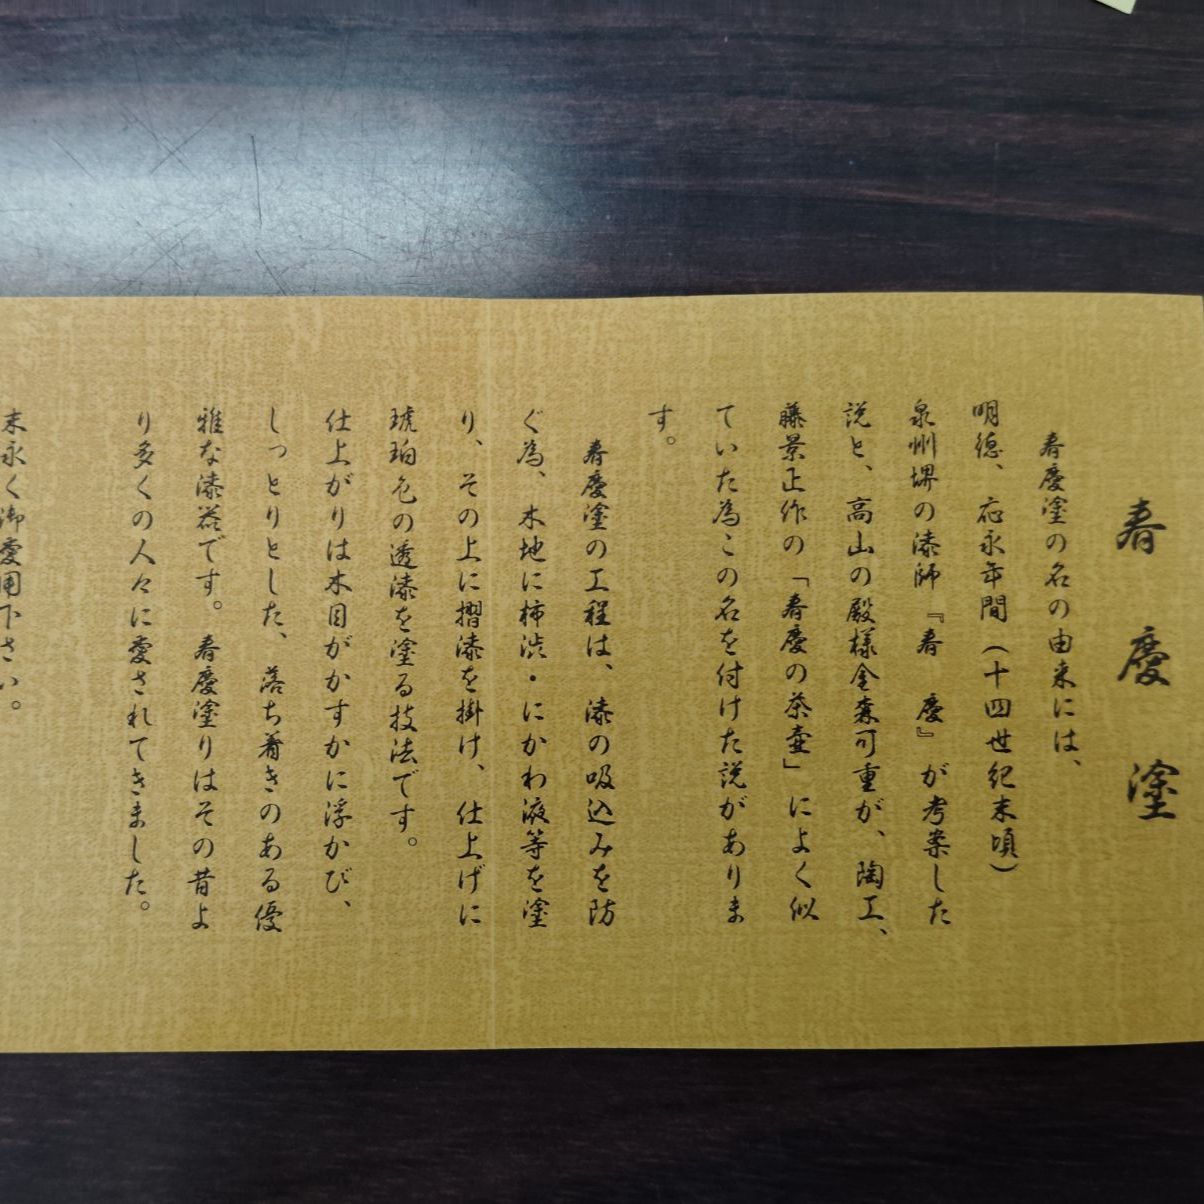 春慶塗
春慶塗の名の由来には、
明徳、応永年間(十四世紀末頃)
泉州堺の漆師『春 慶』が考案した
説と、高山の殿様金森可重が、陶工、
藤景正作の「春慶の茶壷」によく似
ていた為この名を付けた説がありま
す。
春慶塗の工程は、漆の吸込みを防
ぐ為、木地に柿渋・にかわ液等を塗
り、その上に摺漆を掛け、仕上げに
琥珀色の透漆を塗る技法です。
仕上がりは木目がかすかに浮かび、
しっとりとした、落ち着きのある優
雅な漆器です。春慶塗りはその昔よ
り多くの人々に愛されてきました。
末永く御愛用下さい。